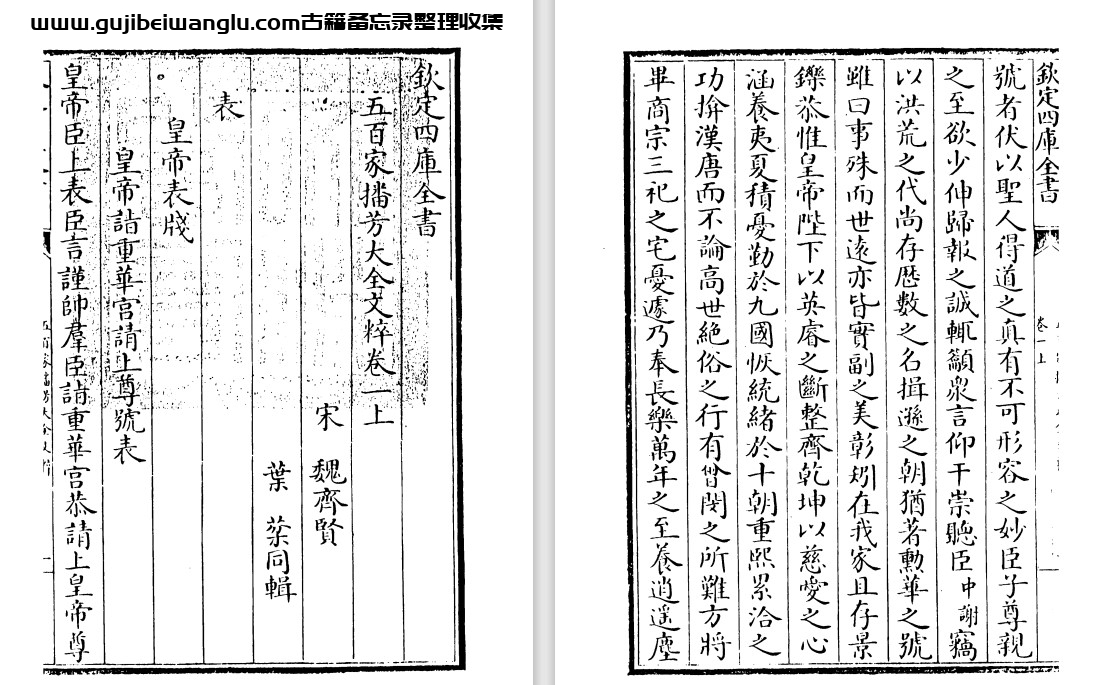 www.gujibeiwanglu.com古籍备忘录整理收集
欽定四庫全書
五百家播芳大全文粹卷一上
宋 魏齊賢
葉 棻同輯
表
皇帝表牋
皇帝詣重華宮請上尊號表
皇帝臣上表臣言謹帥羣臣詣重華宮恭請上皇帝尊
欽定四庫全書
卷一上
號者伏以聖人得道之真有不可形容之妙臣子尊親
之至欲少伸歸報之誠輒籲衆言仰干崇聽臣中謝竊
以洪荒之代尚存歴數之名揖遜之朝猶著勲華之號
雖曰事殊而世遠亦皆實副之美彰矧在我家且存景
鑠恭惟皇帝陛下以英睿之斷整齊乾坤以慈愛之心
涵養夷夏積憂勤於九國恢統緒於十朝重熙累洽之
功揜漢唐而不論高世絶俗之行有曾閔之所難方將
畢商宗三祀之宅憂遽乃奉長樂萬年之至養逍遥塵